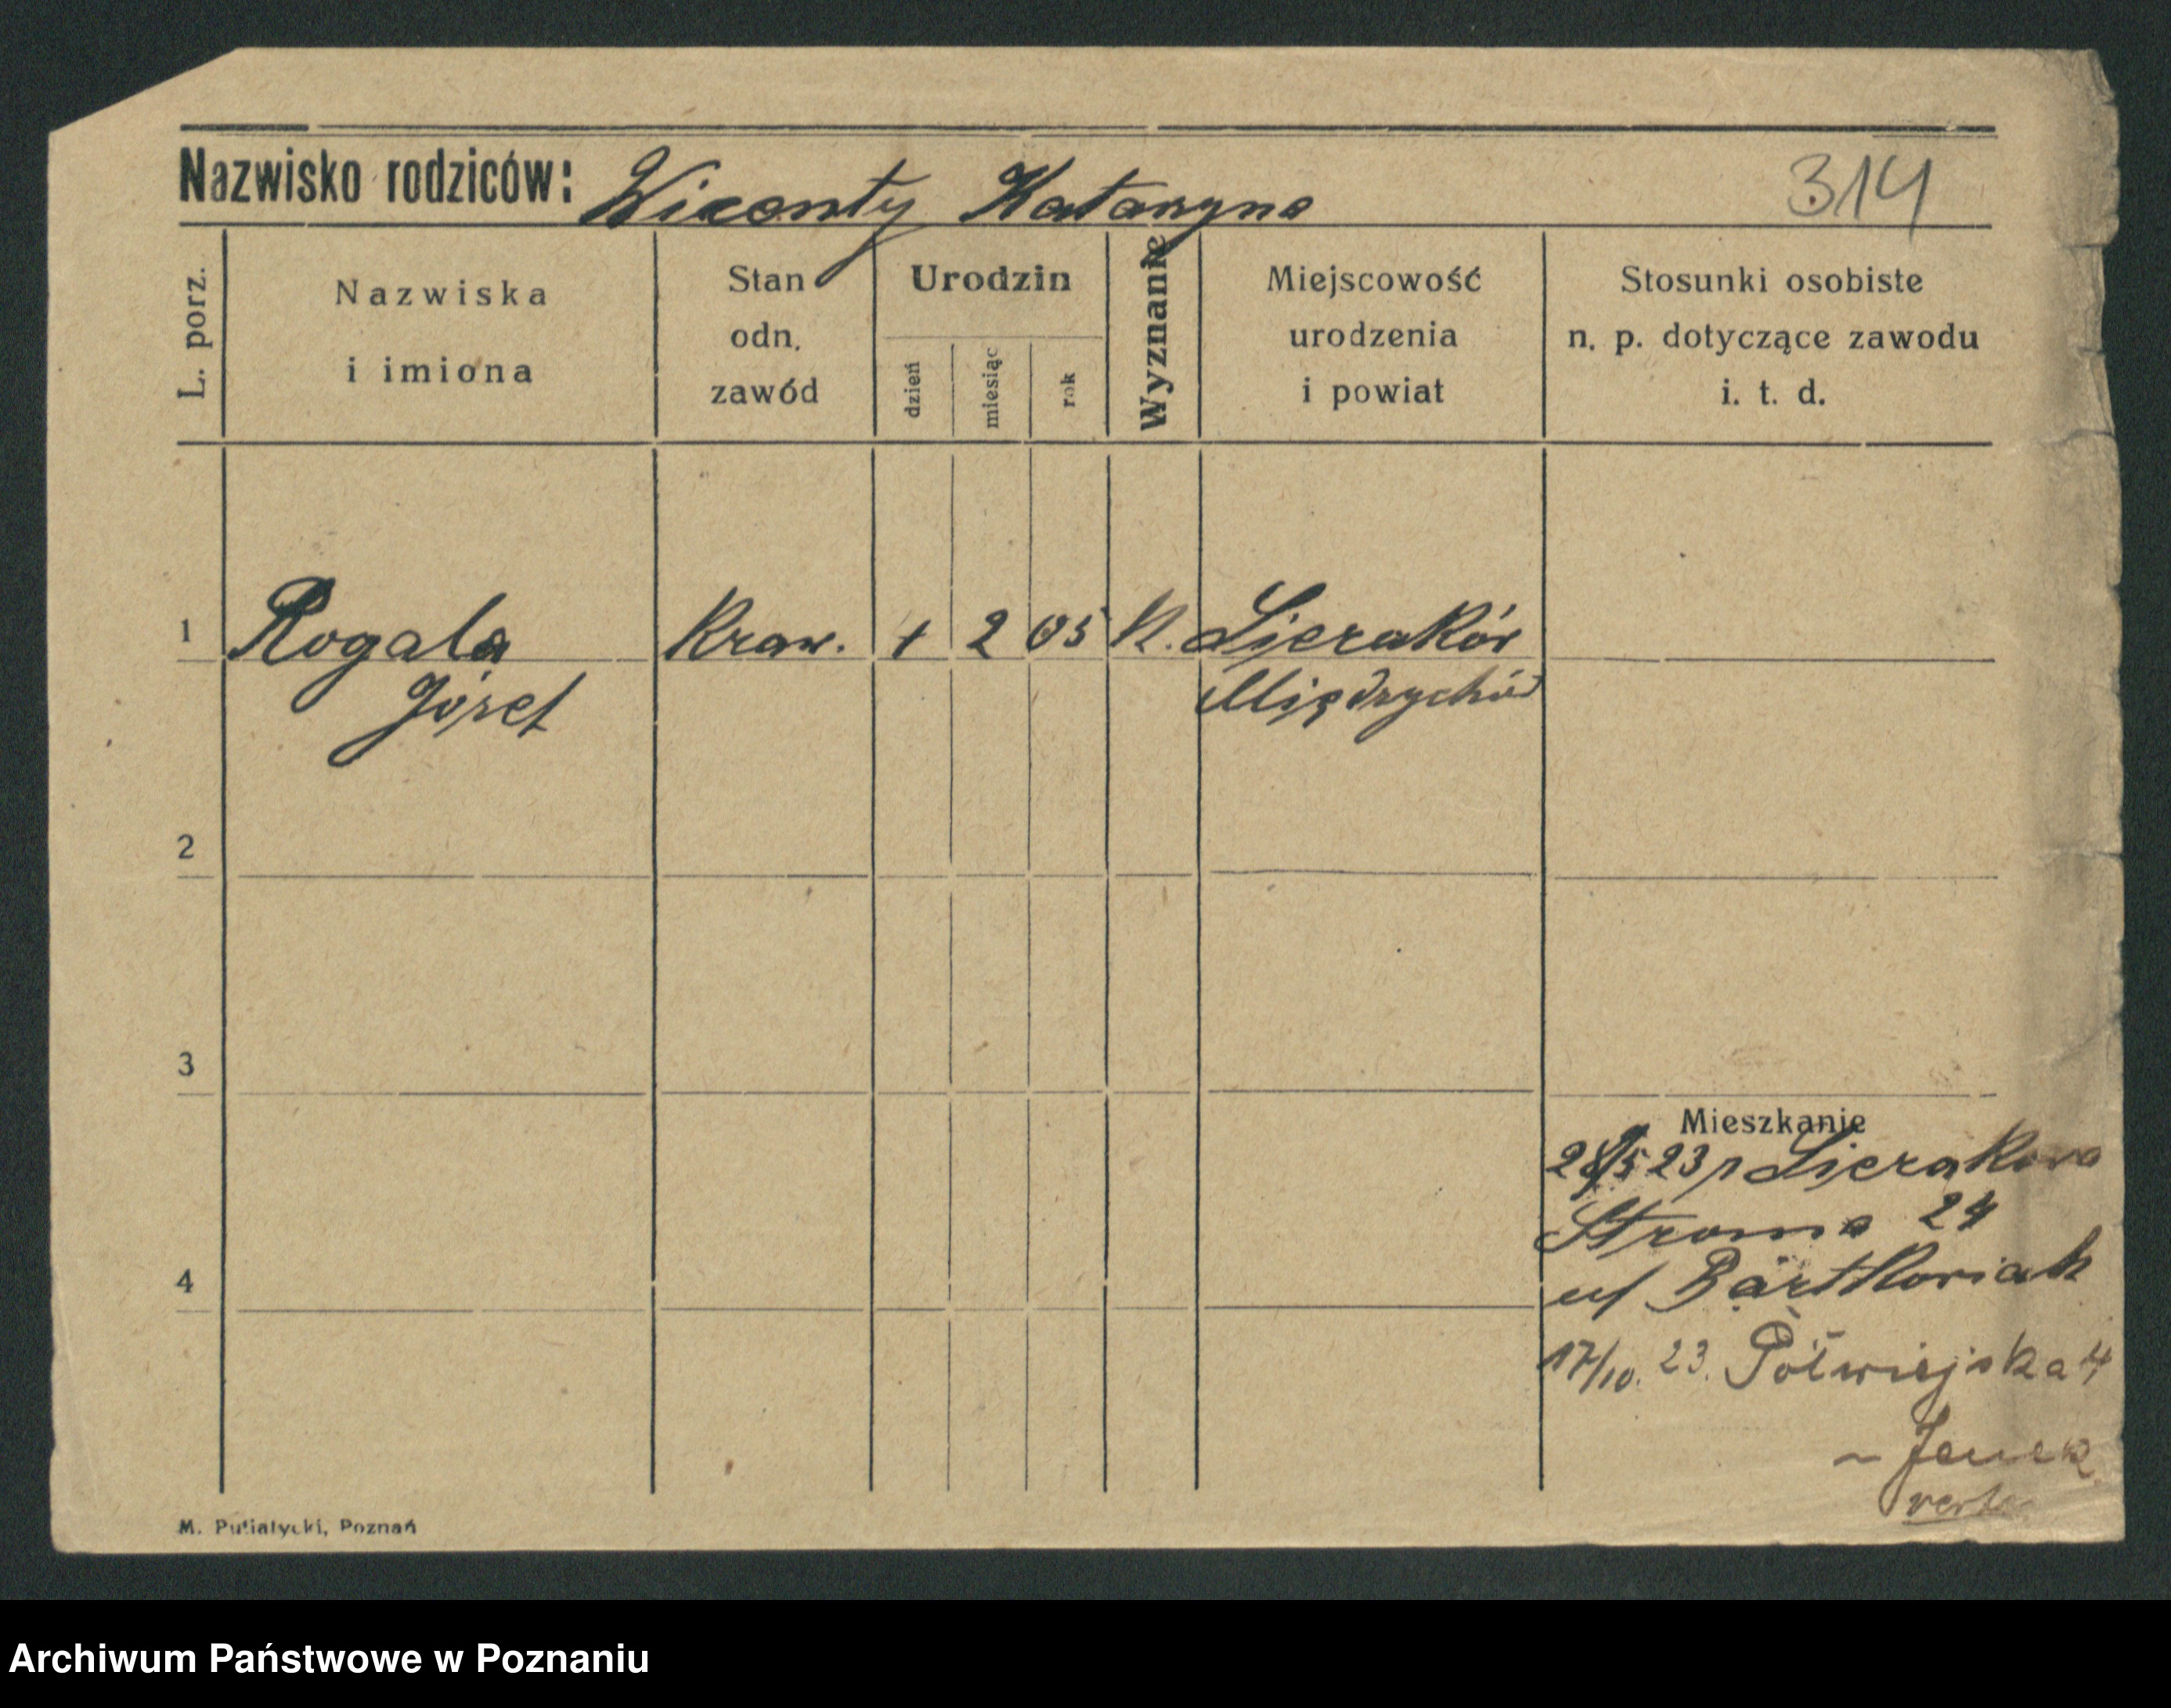 Nazwisko rodziców: Wicenty Katarzyna 314
L. porz.
Nazwiska
i imiona
Stan
odn.
zawód
Urodzin
dzień
miesiąc
rok
Wyznanie
Miejscowość
urodzenia
i powiat
Stosunki osobiste
n. p. dotyczące zawodu
i. t. d.
1 Rogala Kraw. 1 2 05 K. Sieraków
Józef Międzychód
2
3
4
Mieszkanie
28/5 23 z Sierakowa
Stroma 24
u/ Bartkowiak
17/10. 23. Półwiejska 4
verte
M. Putiatycki, Poznań
Archiwum Państwowe w Poznaniu